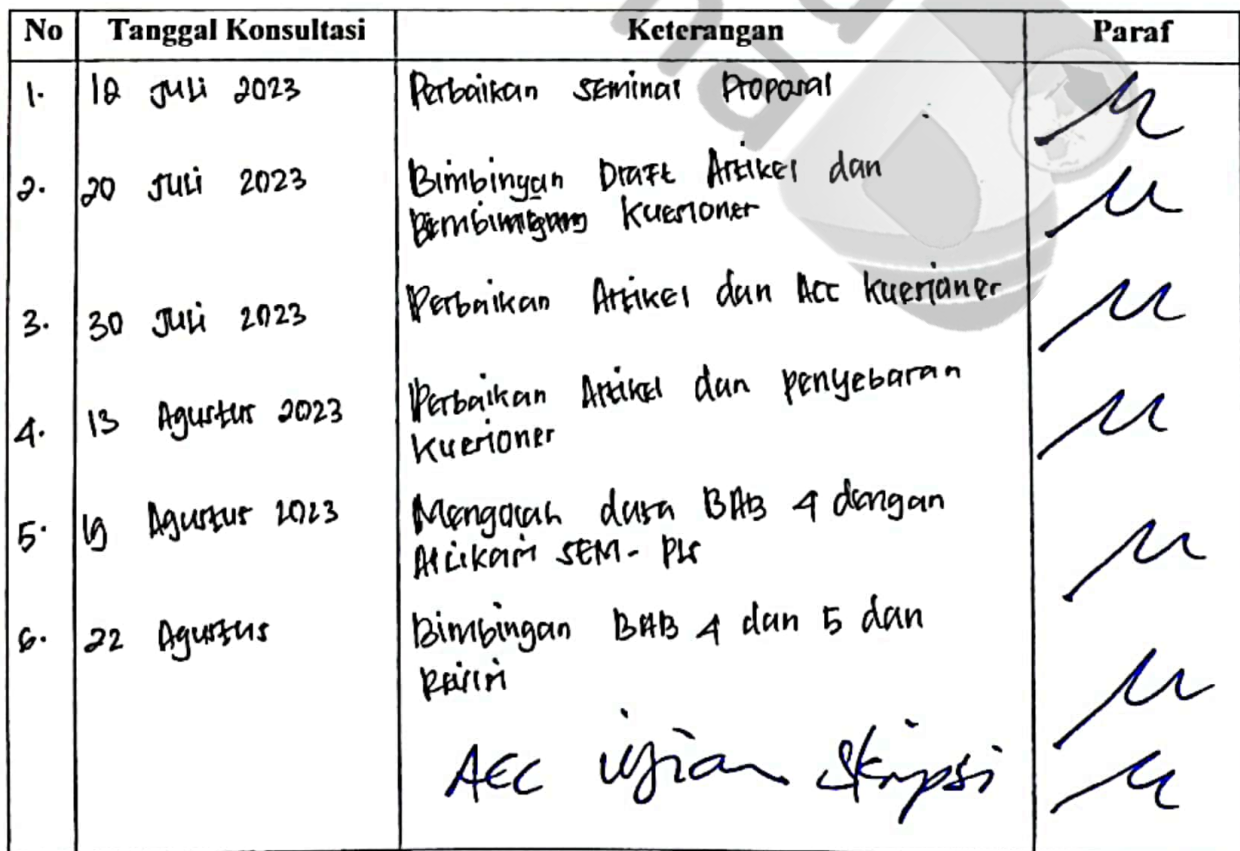 No Tanggal Konsultasi Keterangan Paraf
1. 12 Juli 2023 Perbaikan Seminar Proposal
2. 20 Juli 2023 Bimbingan Draft Artikel dan
Kuesioner
3. 30 Juli 2023 Perbaikan Artikel dan Acc kuesioner
4. 13 Agustus 2023 Perbaikan Artikel dan penyebaran
Kuesioner
5. 19 Agustus 2023 Mengolah data BAB 4 dengan
SEM-PLS
6. 22 Agustus Bimbingan BAB 4 dan 5 dan
Revisi
ACC Ujian Skripsi